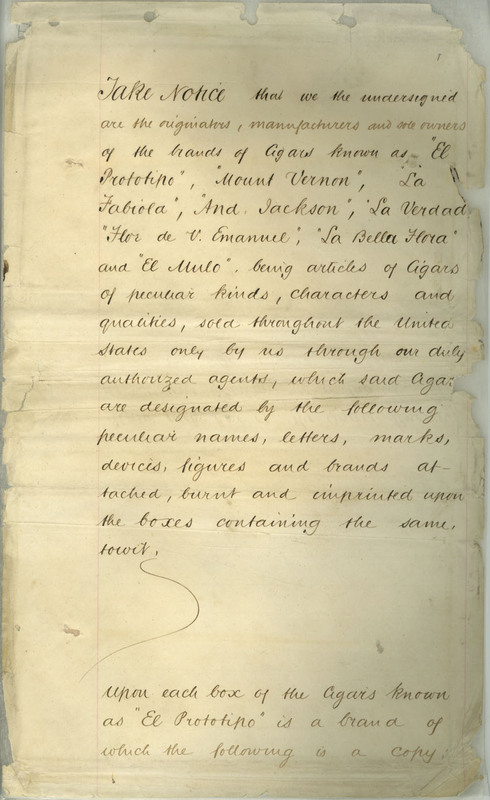 Take Notice that we the undersigned
are the originators, manufacturers and sole owners
of the brands of Cigars known as, "El
Prototipo", "Mount Vernon", "La
Fabiola", "And. Jackson", "La Verdad
"Flor de V. Emanuel", "La Bella Flora"
and "El Mulo". being articles of Cigars
of peculiar kinds, characters and
qualities, sold throughout the United
States only by us through our duly
authorized agents, which said Cigar
are designated by the following
peculiar names, letters, marks,
devices, figures and brands at-
tached, burnt and imprinted upon
the boxes containing the same,
towit,
Upon each box of the Cigars known
as "El Prototipo" is a brand of
which the following is a copy: